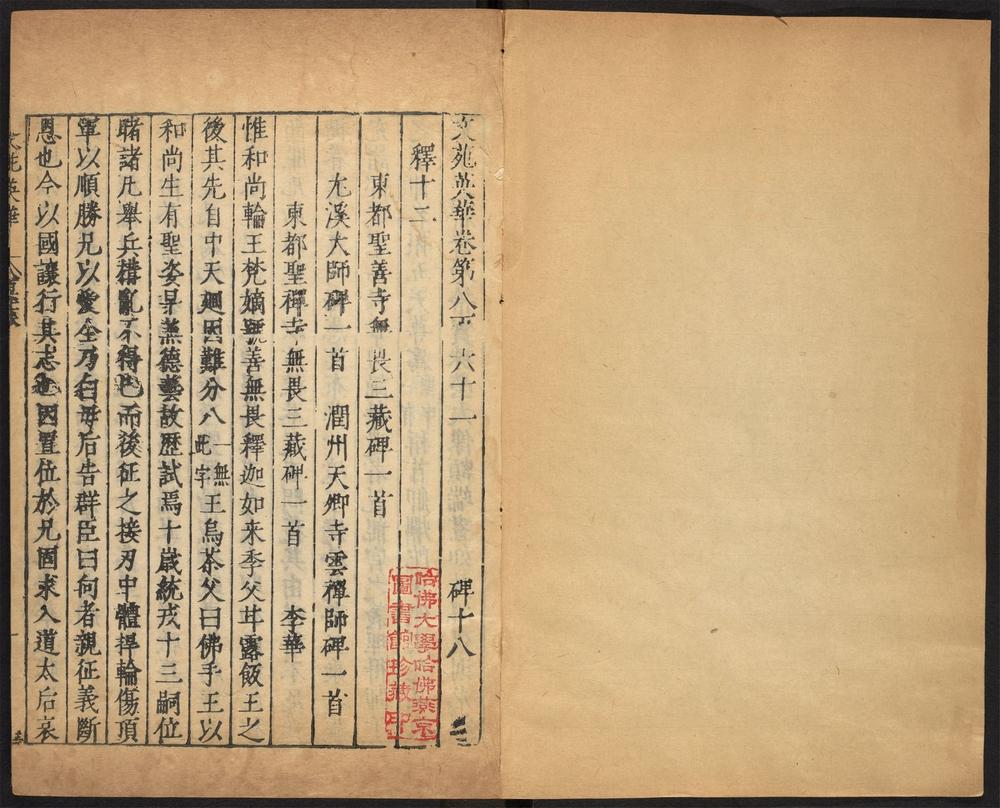 文苑英華卷第八百六十一 碑十八
釋十二
東都聖善寺無畏三藏碑一首
尤溪大師碑一首 潤州天鄉寺雲禪師碑一首
東都聖禪寺無畏三藏碑一首 李華
惟和尚輪王梵嫡號善無畏釋迦如来季父甘露飯王之
後其先自中天𢌞因難分八一無此字王烏荼父曰佛手王以
和尚生有聖姿早蕪德藝故歷試焉十歲統戎十三嗣位
睹諸凡舉兵構亂不得已而後征之接刃中體捍輪傷頂
軍以順勝兄以愛全乃白母后告群臣曰向者親征義斷
恩也今以國讓行其志也因置位於兄固求入道太后哀
文苑英華
哈佛大學哈佛燕京
圖書館珍藏印